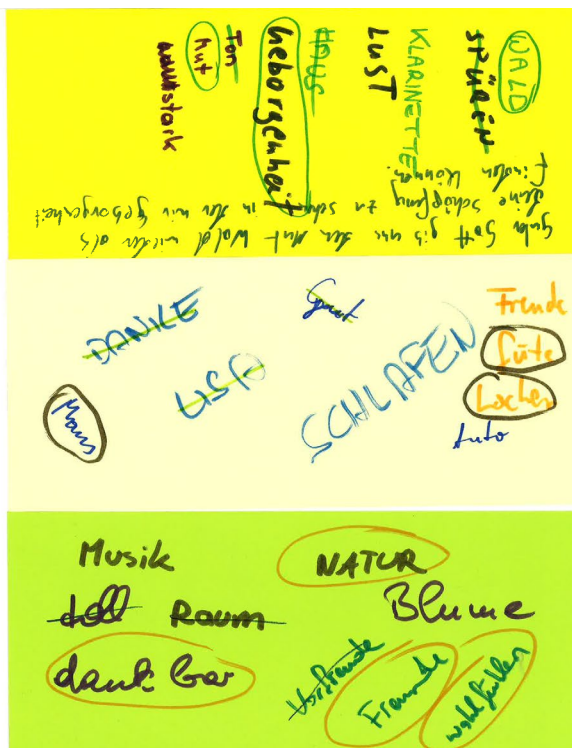 WALD
SPÜREN
KLARINETTE
LUST
HAUS
Geborgenheit
Ton
Mut
lautstark
Guter Gott gib uns den Mut Wald wieder als
deine Schöpfung zu sehen in der wir Geborgenheit
finden können.
DANKE
USA
SCHLAFEN
Freude
Güte
Lachen
Auto
Maus
Musik
NATUR
toll Raum
Blume
dankbar
Vorfreude
Freunde
wohlfühlen